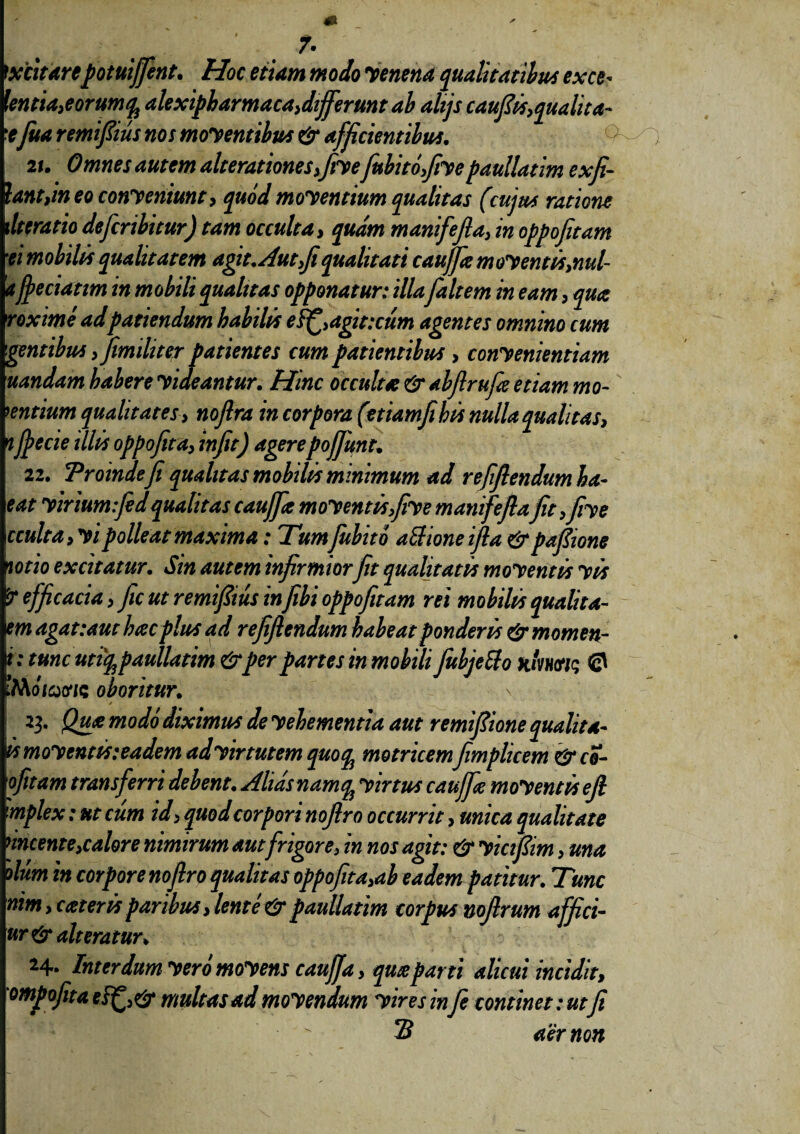 7.
xcitare potuiſſent. Hoc etiam modo venena qualitatibus exce-
lentia, eorumq́ alexipharmaca, differunt ab alijs cauſsis, qualita-
e ſua remiſsiùs nos moventibus & afficientibus.
21. Omnes autem alterationes, ſive ſubitò, ſive paullatim exſi-
ſtant, in eo conveniunt, quòd moventium qualitas (cujus ratione
alteratio deſcribitur) tam occulta, quàm manifeſta, in oppoſitam
ei mobilis qualitatem agit. Aut, ſi qualitati cauſſæ moventis, nul-
a ſpeciatim in mobili qualitas opponatur: illa ſaltem in eam, quæ
roximè ad patiendum habilis eſt, agit: cùm agentes omnino cum
gentibus, ſimiliter patientes cum patientibus, convenientiam
uandam habere videantur. Hinc occultæ & abſtruſæ etiam mo-
ventium qualitates, noſtra in corpora (etiamſi his nulla qualitas,
ſpecie illis oppoſita, inſit) agere poſſunt.
22. Proinde ſi qualitas mobilis minimum ad reſiſtendum ha-
eat virium: ſed qualitas cauſſæ moventis, ſive manifeſta ſit, ſive
cculta, vi polleat maxima: Tum ſubitò actione iſta & paſsione
motio excitatur. Sin autem infirmior ſit qualitatis moventis vis
& efficacia, ſic ut remiſsiùs in ſibi oppoſitam rei mobilis qualita-
em agat: aut hæc plus ad reſiſtendum habeat ponderis & momen-
i: tunc utiq́ paullatim & per partes in mobili ſubjecto κίνησις &
ἀλλοίωσις oboritur.
23. Quæ modò diximus de vehementia aut remiſsione qualita-
is moventis: eadem ad virtutem quoq́ motricem ſimplicem & cō-
poſitam transferri debent. Aliàs namq́ virtus cauſſæ moventis eſt
implex: ut cùm id, quod corpori noſtro occurrit, unica qualitate
vincente, calore nimirum aut frigore, in nos agit: & viciſsim, una
olùm in corpore noſtro qualitas oppoſita, ab eadem patitur. Tunc
nim, cæteris paribus, lentè & paullatim corpus noſtrum affici-
ur & alteratur.
24. Interdum verò movens cauſſa, quæ parti alicui incidit,
compoſita eſt, & multas ad movendum vires in ſe continet: ut ſi
B aër non